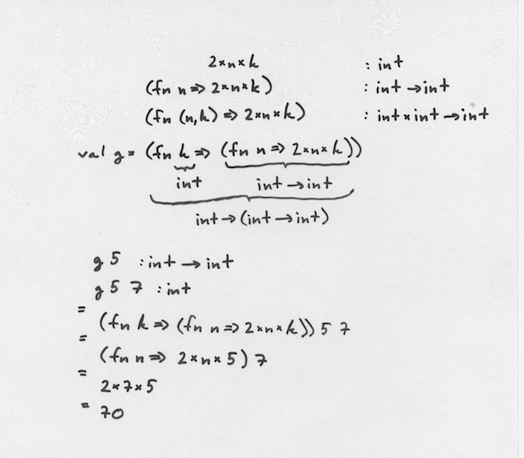 2*n*k : int
(fn n => 2*n*k) : int → int
(fn (n,k) => 2*n*k) : int * int → int
val g = (fn k => (fn n => 2*n*k))
int int → int
int → (int → int)
g 5 : int → int
g 5 7 : int
=
(fn k => (fn n => 2*n*k)) 5 7
=
(fn n => 2*n*5) 7
=
2*7*5
=
70